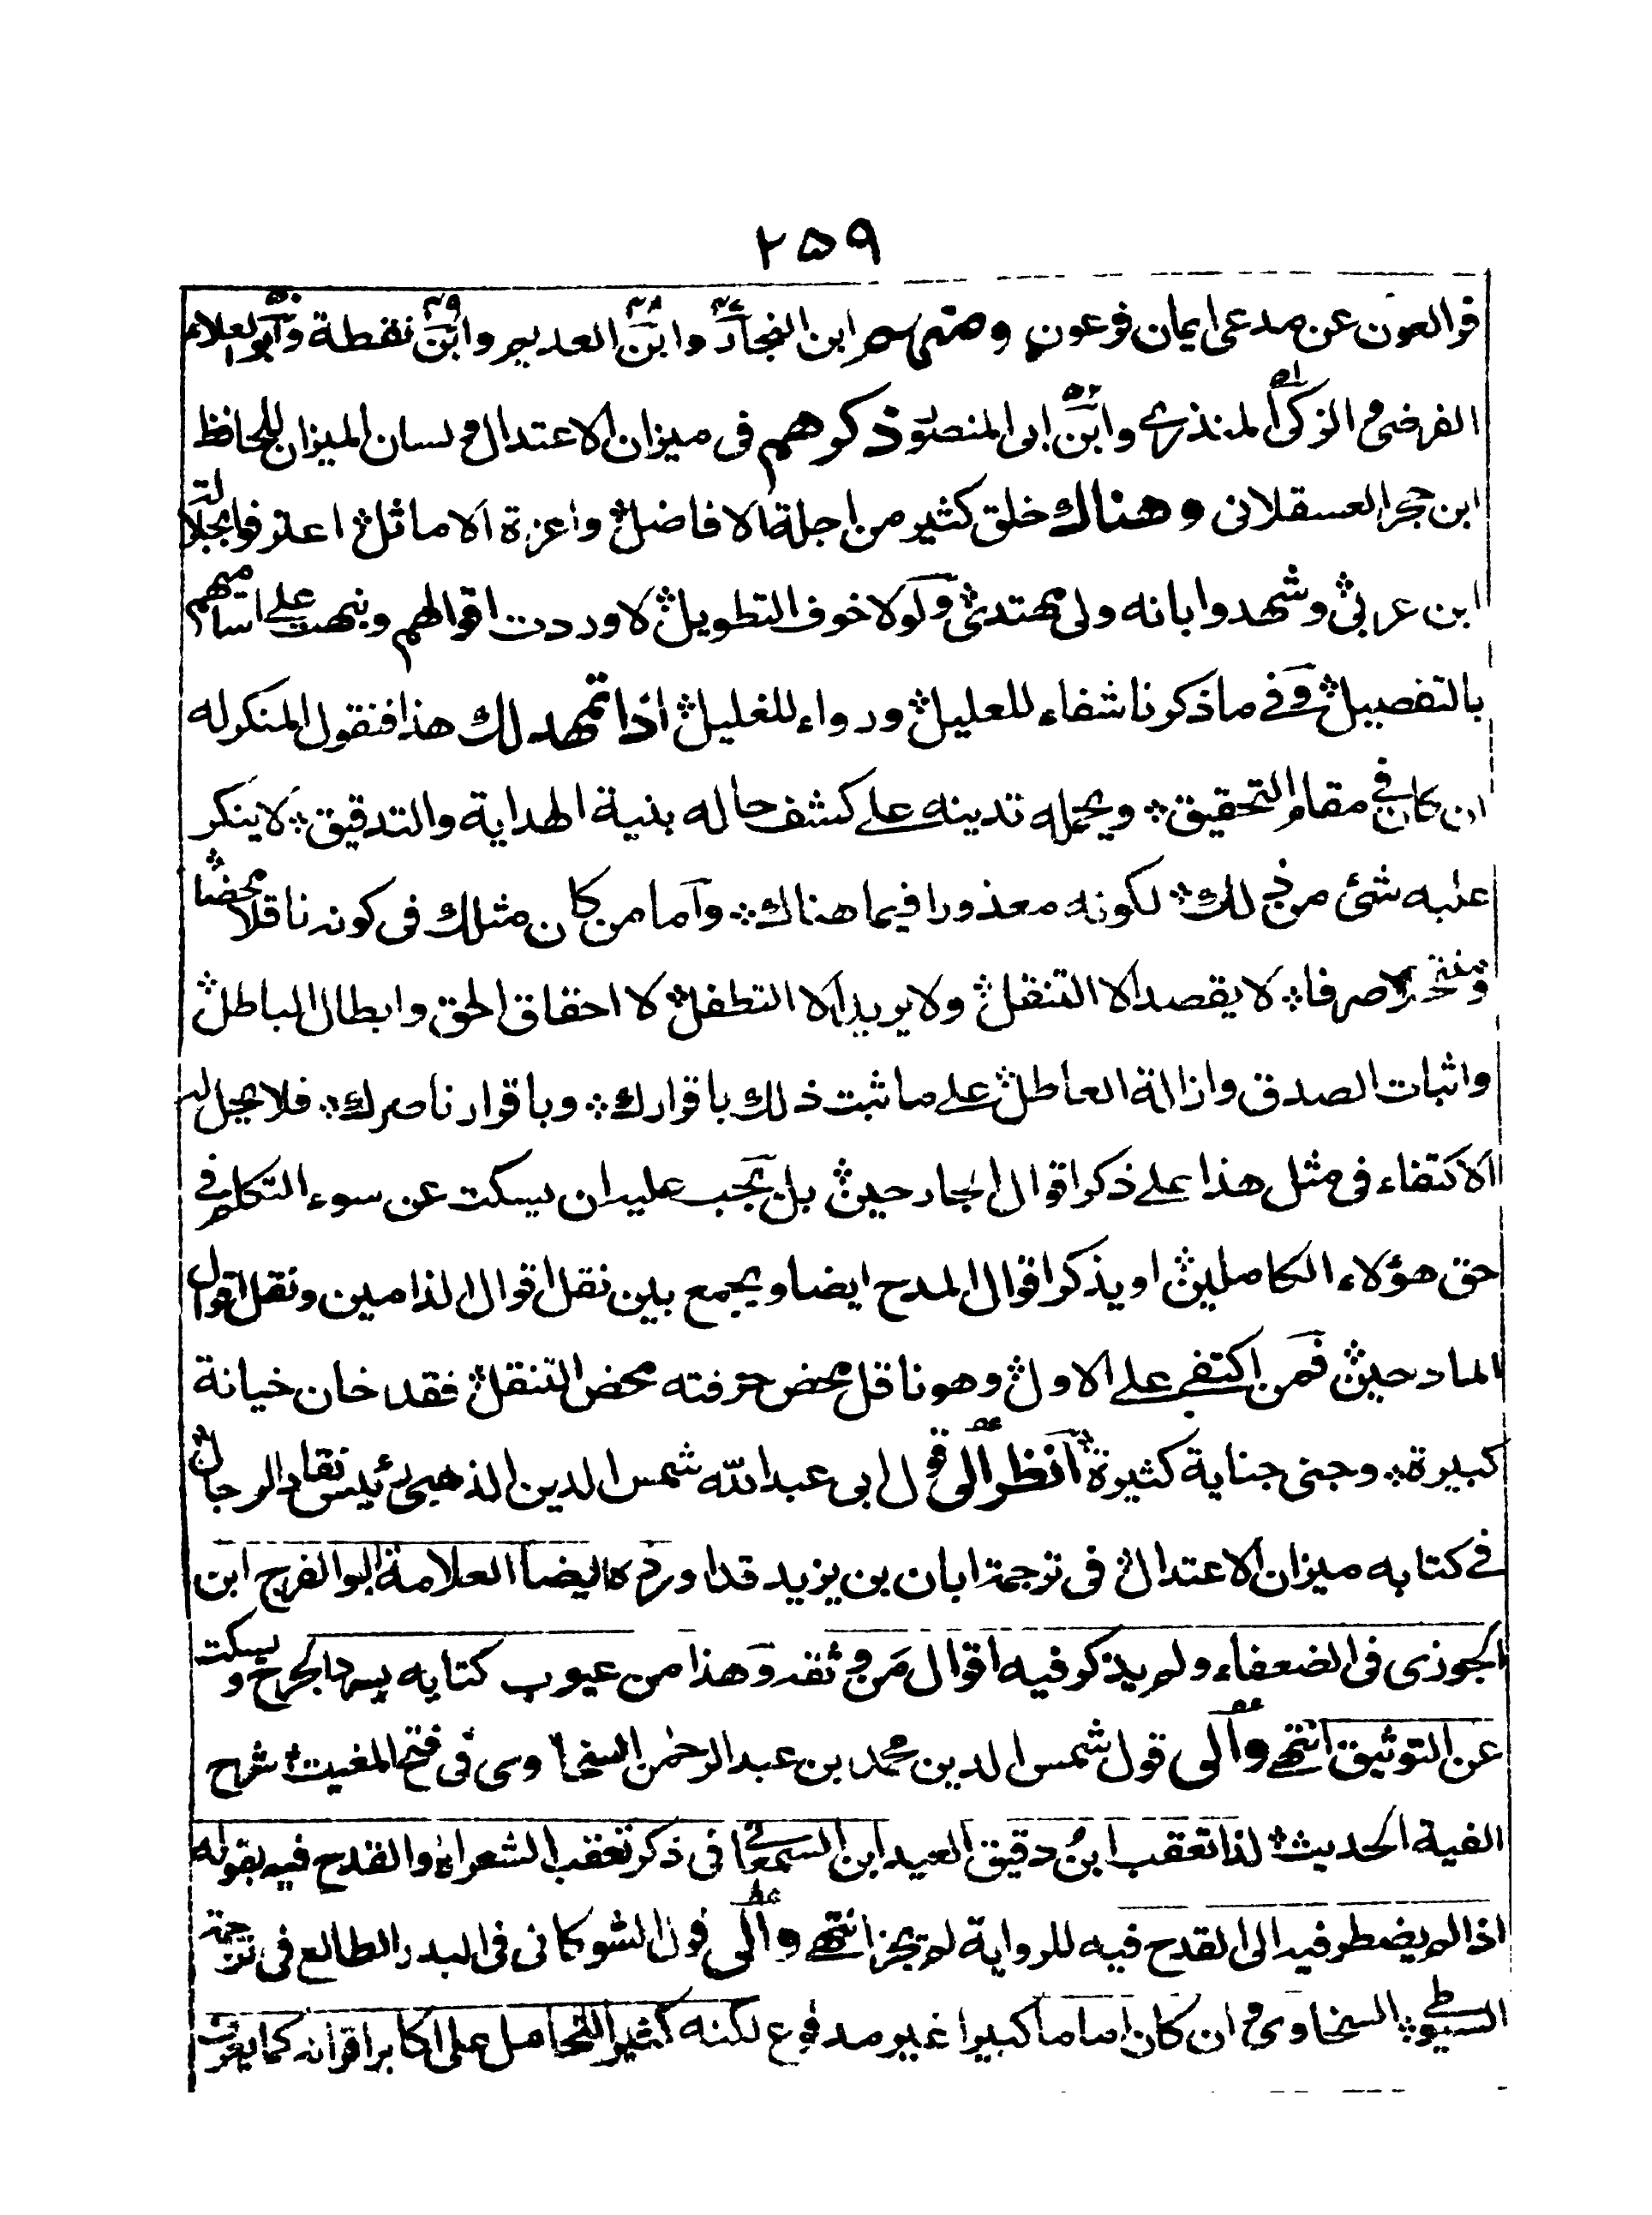 ٢٥٩
فر العون عن مدعى ايمان فرعون ومنهم ابن النجار وابن العديم وابن نقطة وابو العلاء
الفرضى و الزكى المنذرى وابن ابى المنصور ذكرهم فى ميزان الاعتدال و لسان الميزان للحافظ
ابن حجر العسقلانى وهناك خلق كثير من اجلة الافاضل واعزة الاماثل اعترفوا بجلالة
ابن عربى وشهدوا بانه ولى مهتدى ولولا خوف التطويل لاوردت اقوالهم ونبهت على اساميهم
بالتفصيل وفي ما ذكرنا شفاء للعليل ورواء للغليل اذا تمهد لك هذا فنقول المنكر له
ان كان في مقام التحقيق ويحمله تدينه على كشف حاله بنية الهداية والتدقيق لا ينكر
عليه شئ من ذلك لكونه معذورا فيما هناك وآما من كان مثلك فى كونه ناقلا محضا
ومنتحلا صرفا لا يقصد الا التنقل ولا يريد الا التطفل لا احقاق الحق وابطال الباطل
واثبات الصدق وازالة العاطل على ما ثبت ذلك باقرارك وباقرار ناصرك فلا يحل له
الاكتفاء فى مثل هذا على ذكر اقوال الجارحين بل يجب عليه ان يسكت عن سوء التكلم في
حق هؤلاء الكاملين او يذكر اقوال المدح ايضا ويجمع بين نقل اقوال الذامين ونقل اقوال
المادحين فمن اكتفى على الاول وهو ناقل محض حرفته محض التنقل فقد خان خيانة
كبيرة وجنى جناية كثيرة انظر الى قول ابى عبد الله شمس الدين الذهبى رئيس نقاد الرجال
في كتابه ميزان الاعتدال فى ترجمة ابان بن يزيد قد اورده ايضا العلامة ابو الفرج ابن
الجوزى فى الضعفاء ولم يذكر فيه اقوال من وثقه وهذا من عيوب كتابه يسرد الجرح ويسكت
عن التوثيق انتهى والى قول شمس الدين محمد بن عبد الرحمٰن السخاوى فى فتح المغيث شرح
الفية الحديث لذا تعقب ابنُ دقيق العيد ابن السمعانى فى ذكر تعقب الشعراء والقدح فيه بقوله
اذا لم يضطر فيه الى القدح فيه للرواية لم يجز انتهى والى قول الشوكانى فى البدر الطالع فى ترجمة
السيوطى السخاوى و ان كان اماما كبيرا غير مدفوع لكنه كثير التحامل على اكابر اقرانه كما يعرف